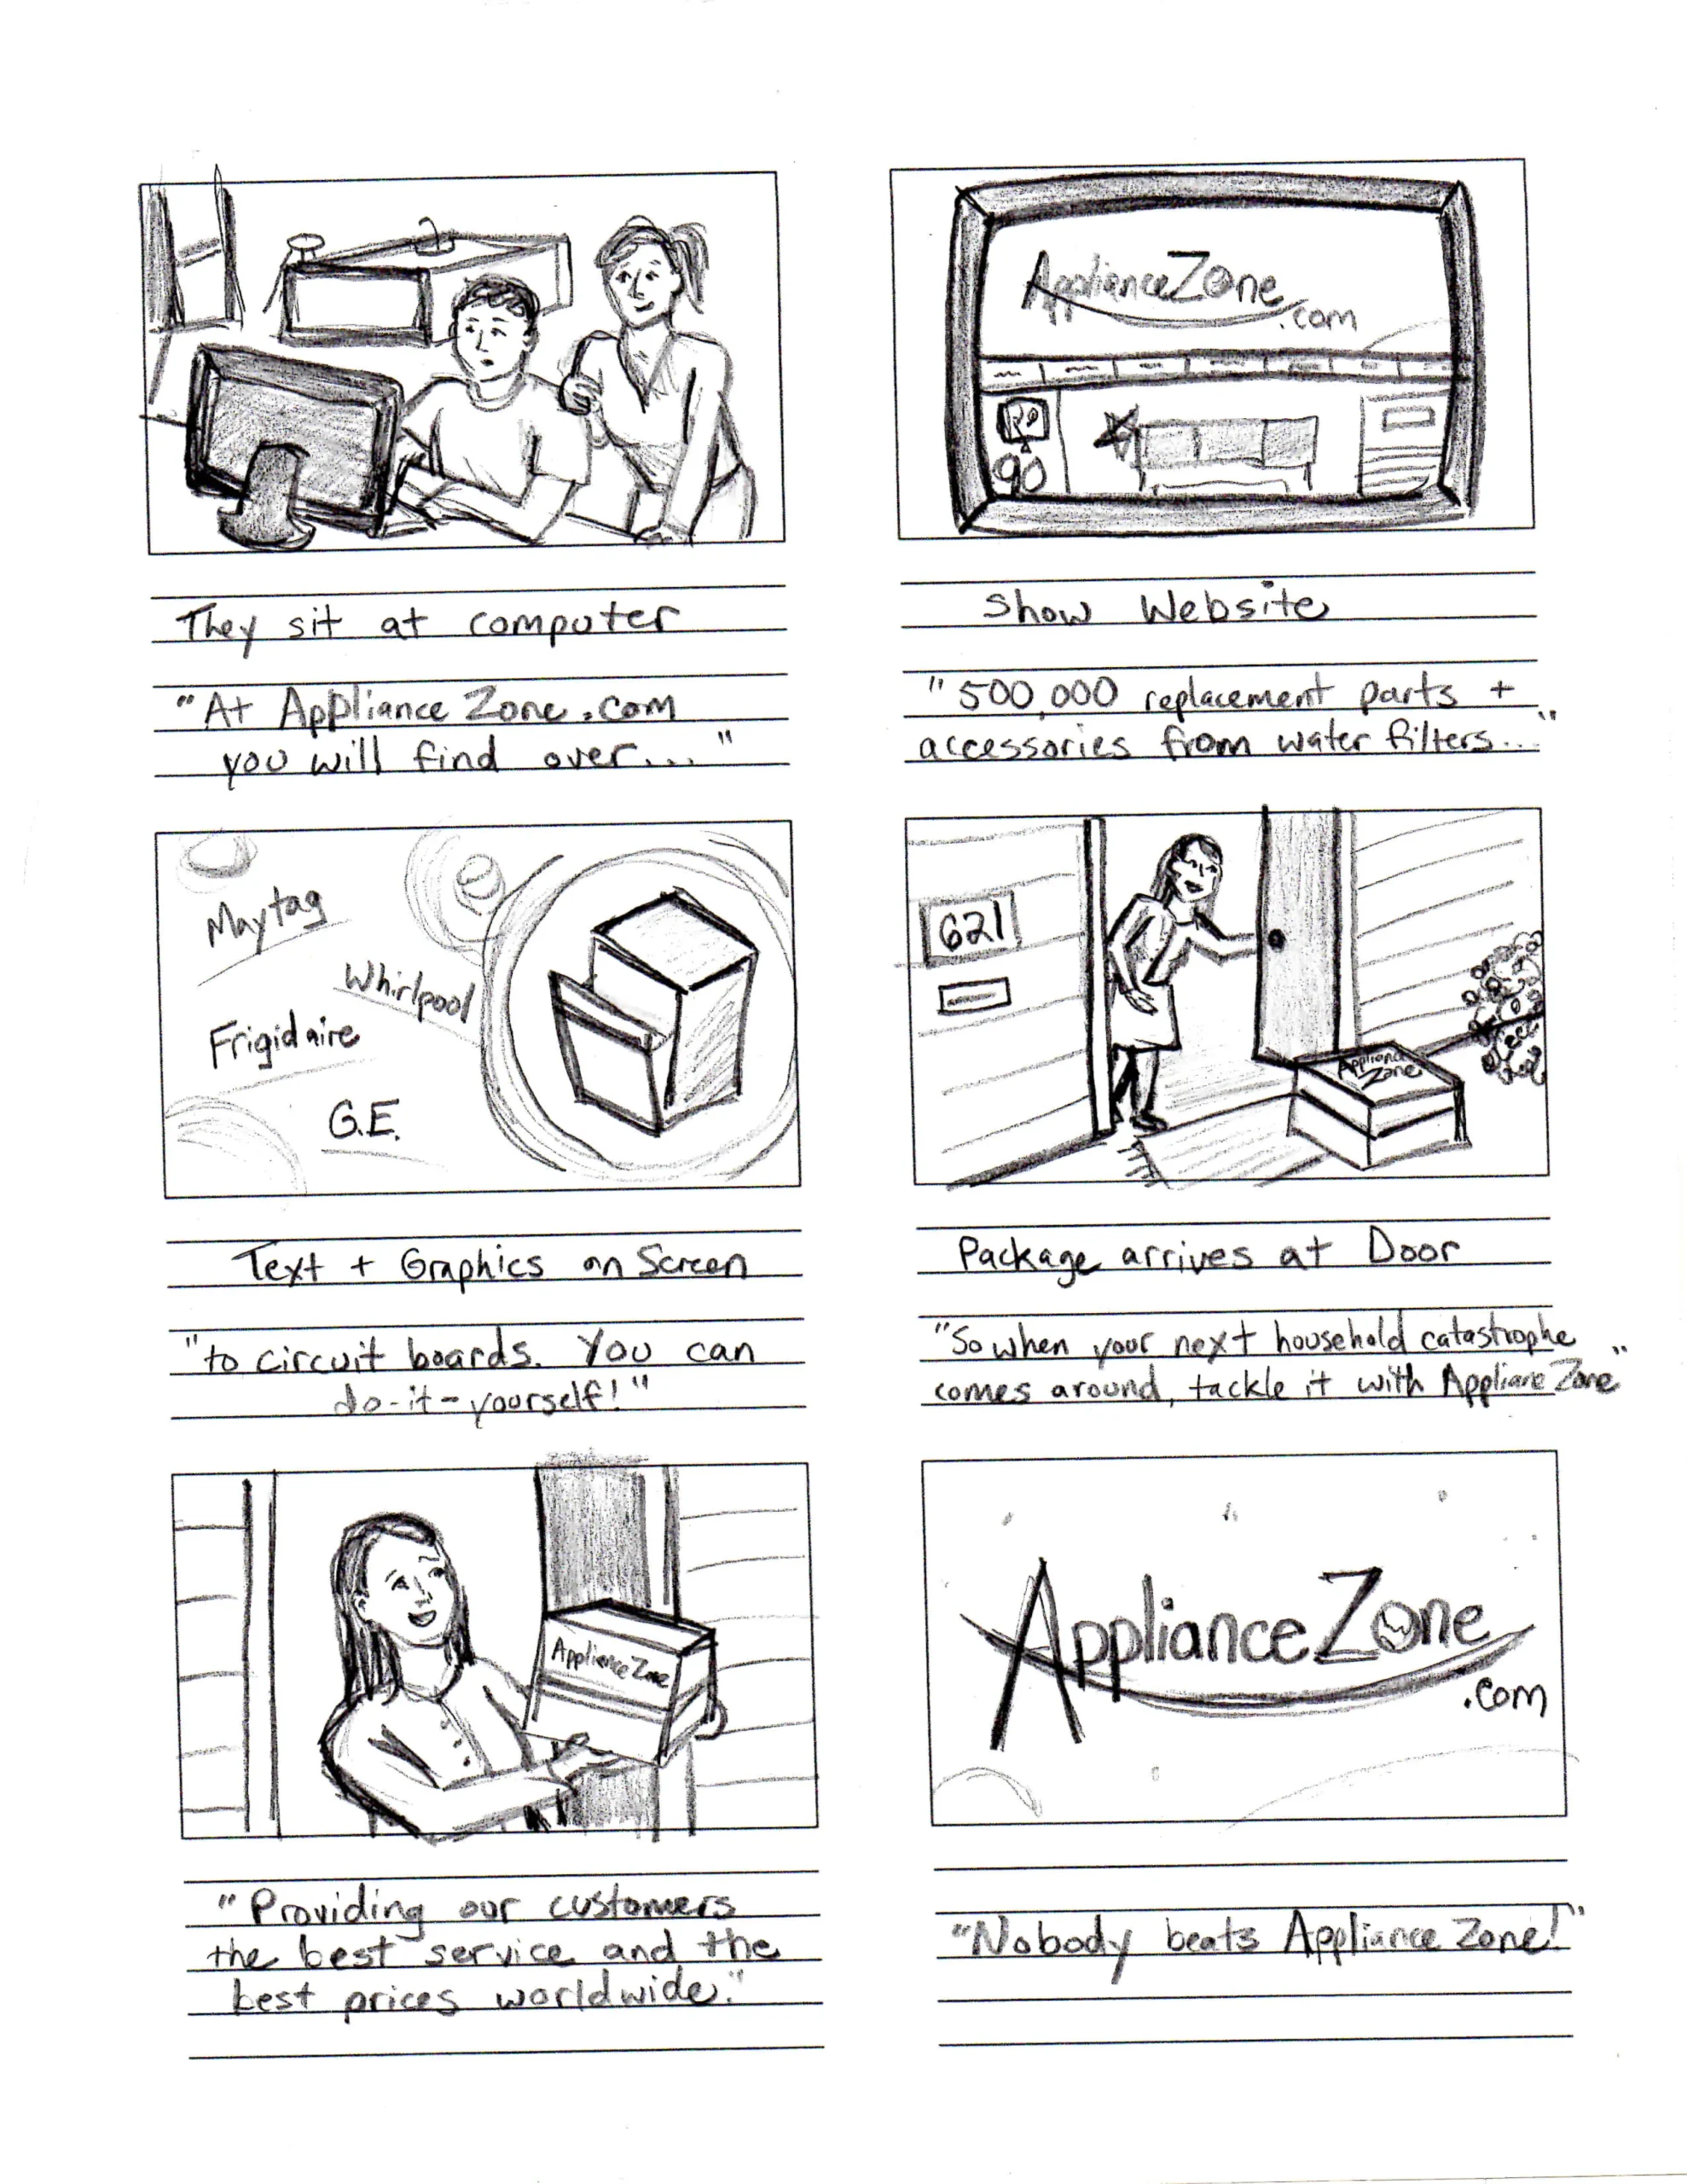 They sit at computer
"At Appliance Zone.com
you will find over..."
ApplianceZone
.com
90
Show Website
"500,000 replacement parts +
accessories from water filters..."
Maytag
Whirlpool
Frigidaire
G.E.
Text + Graphics on Screen
"to circuit boards. You can
do-it-yourself!"
621
Appliance
Zone
Package arrives at Door
"So when your next household catastrophe
comes around, tackle it with Appliane Zone"
Appliance Zone
"Providing our customers
the best service and the
best prices worldwide."
ApplianceZone
.com
"Nobody beats Appliance Zone!"